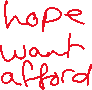 hope
want
afford